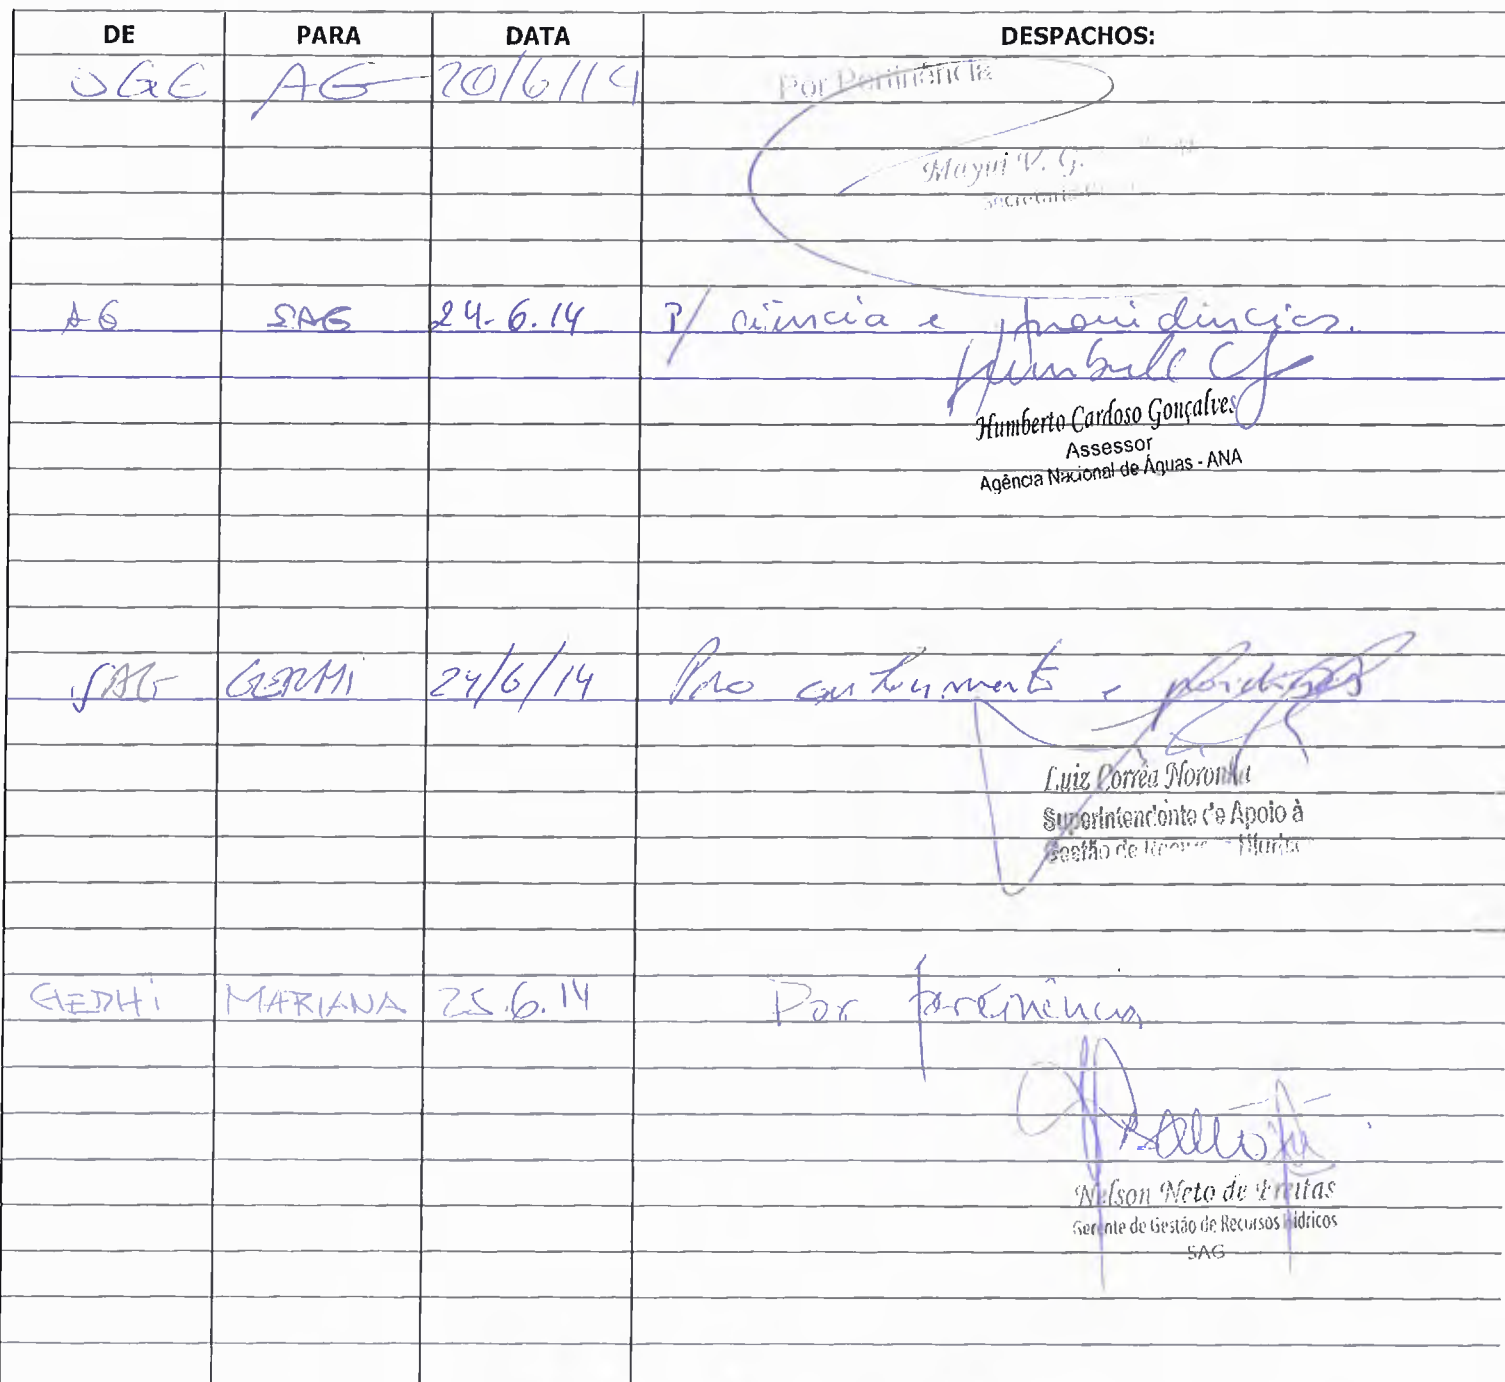 DE PARA DATA DESPACHOS:
AG 20/6/14 Por Pertinência
Mayui V. G.
AG SAG 24-6.14 P/ ciência e providências.
Humberto Cardoso Gonçalves
Assessor
Agência Nacional de Águas - ANA
SAG 24/6/14 e
Luiz Corrêa Noronha
Superintendente de Apoio à
Gestão de
MARIANA 25.6.14 Por pertinência
Nelson Neto de Freitas
Gerente de Gestão de Recursos Hídricos
SAG